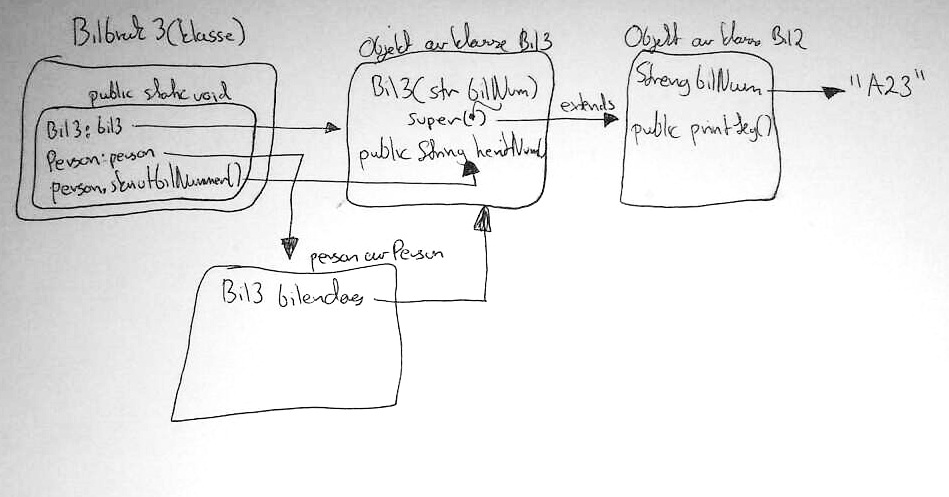 Bilbruk 3 (klasse)
public static void
Bil3: bil3
Person: person
person.skrivutBilNummer()
Objekt av klasse Bil3
Bil3(str bilNum)
super(•)
public String hentNum(
extends
Objekt av klasse Bil2
Streng bilNum
public printSeg()
"A23"
person av Person
Bil3 bilen